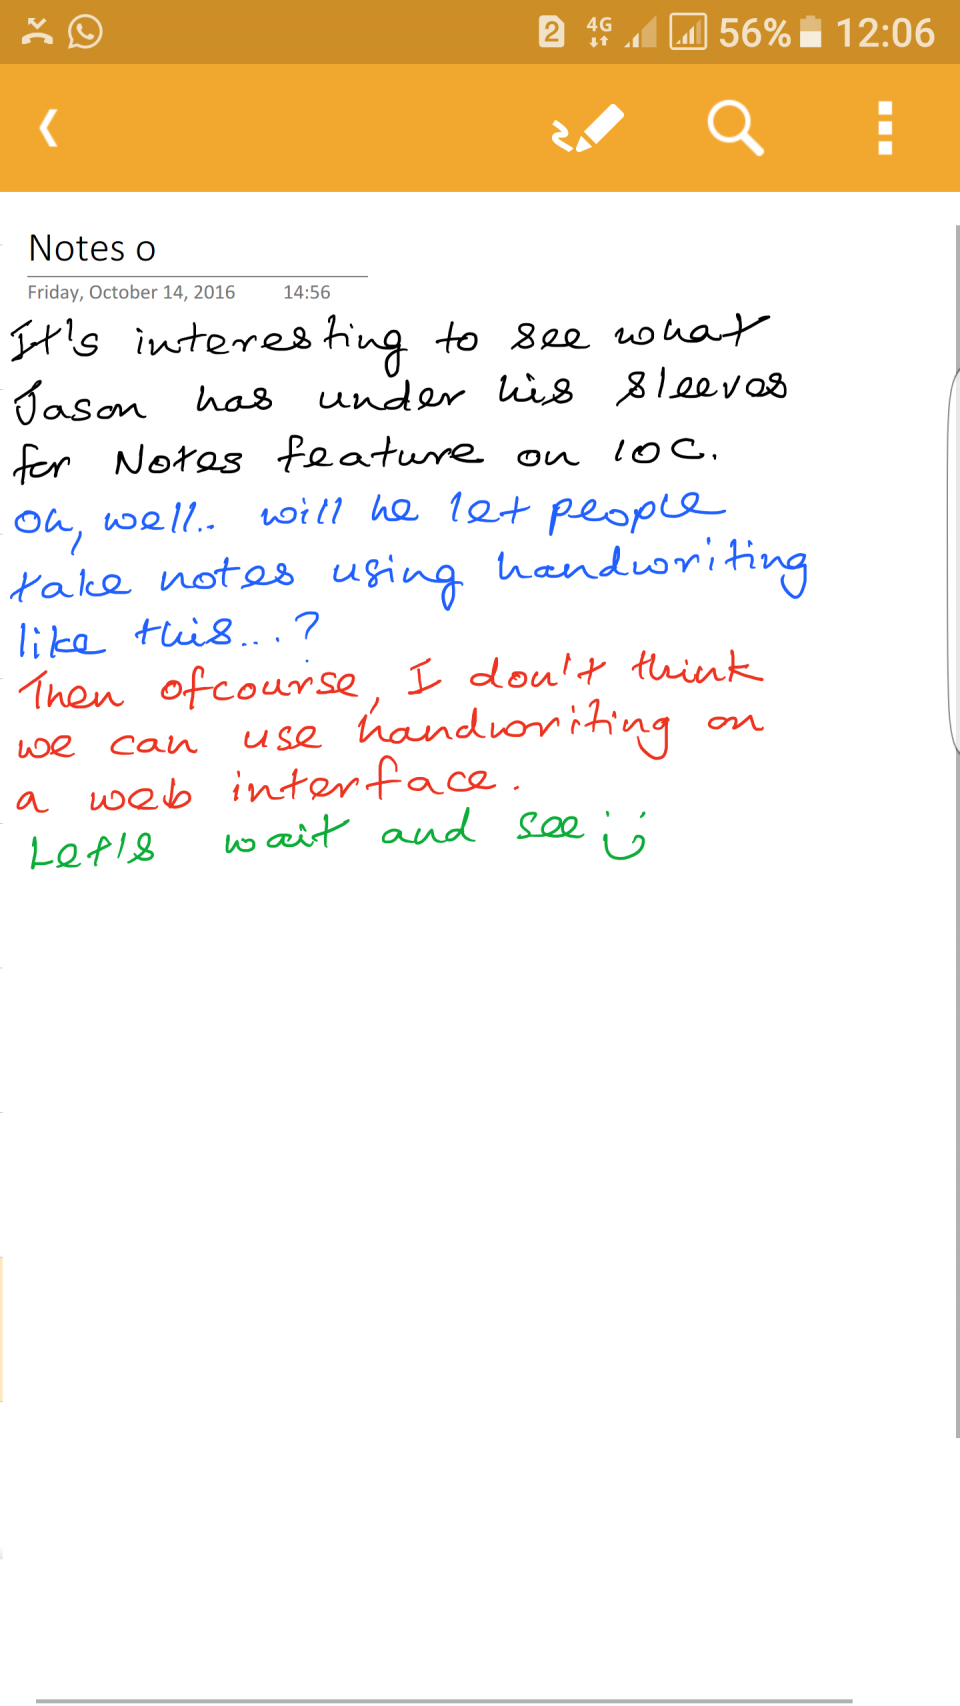 2 4G 56% 12:06
Notes o
Friday, October 14, 2016 14:56
It's interesting to see what
Jason has under his sleeves
for Notes feature on IOC.
Oh, well.. will he let people
take notes using handwriting
like this...?
Then ofcourse, I don't think
we can use handwriting on
a web interface.
Let's wait and see :)